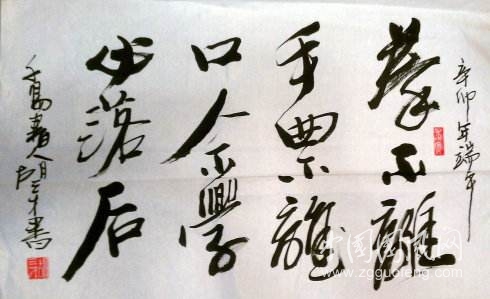 辛卯年端午
拳不離
手曲不離
口人不學
必落后
千島
人
書
中国国风网
www.zgguofeng.com